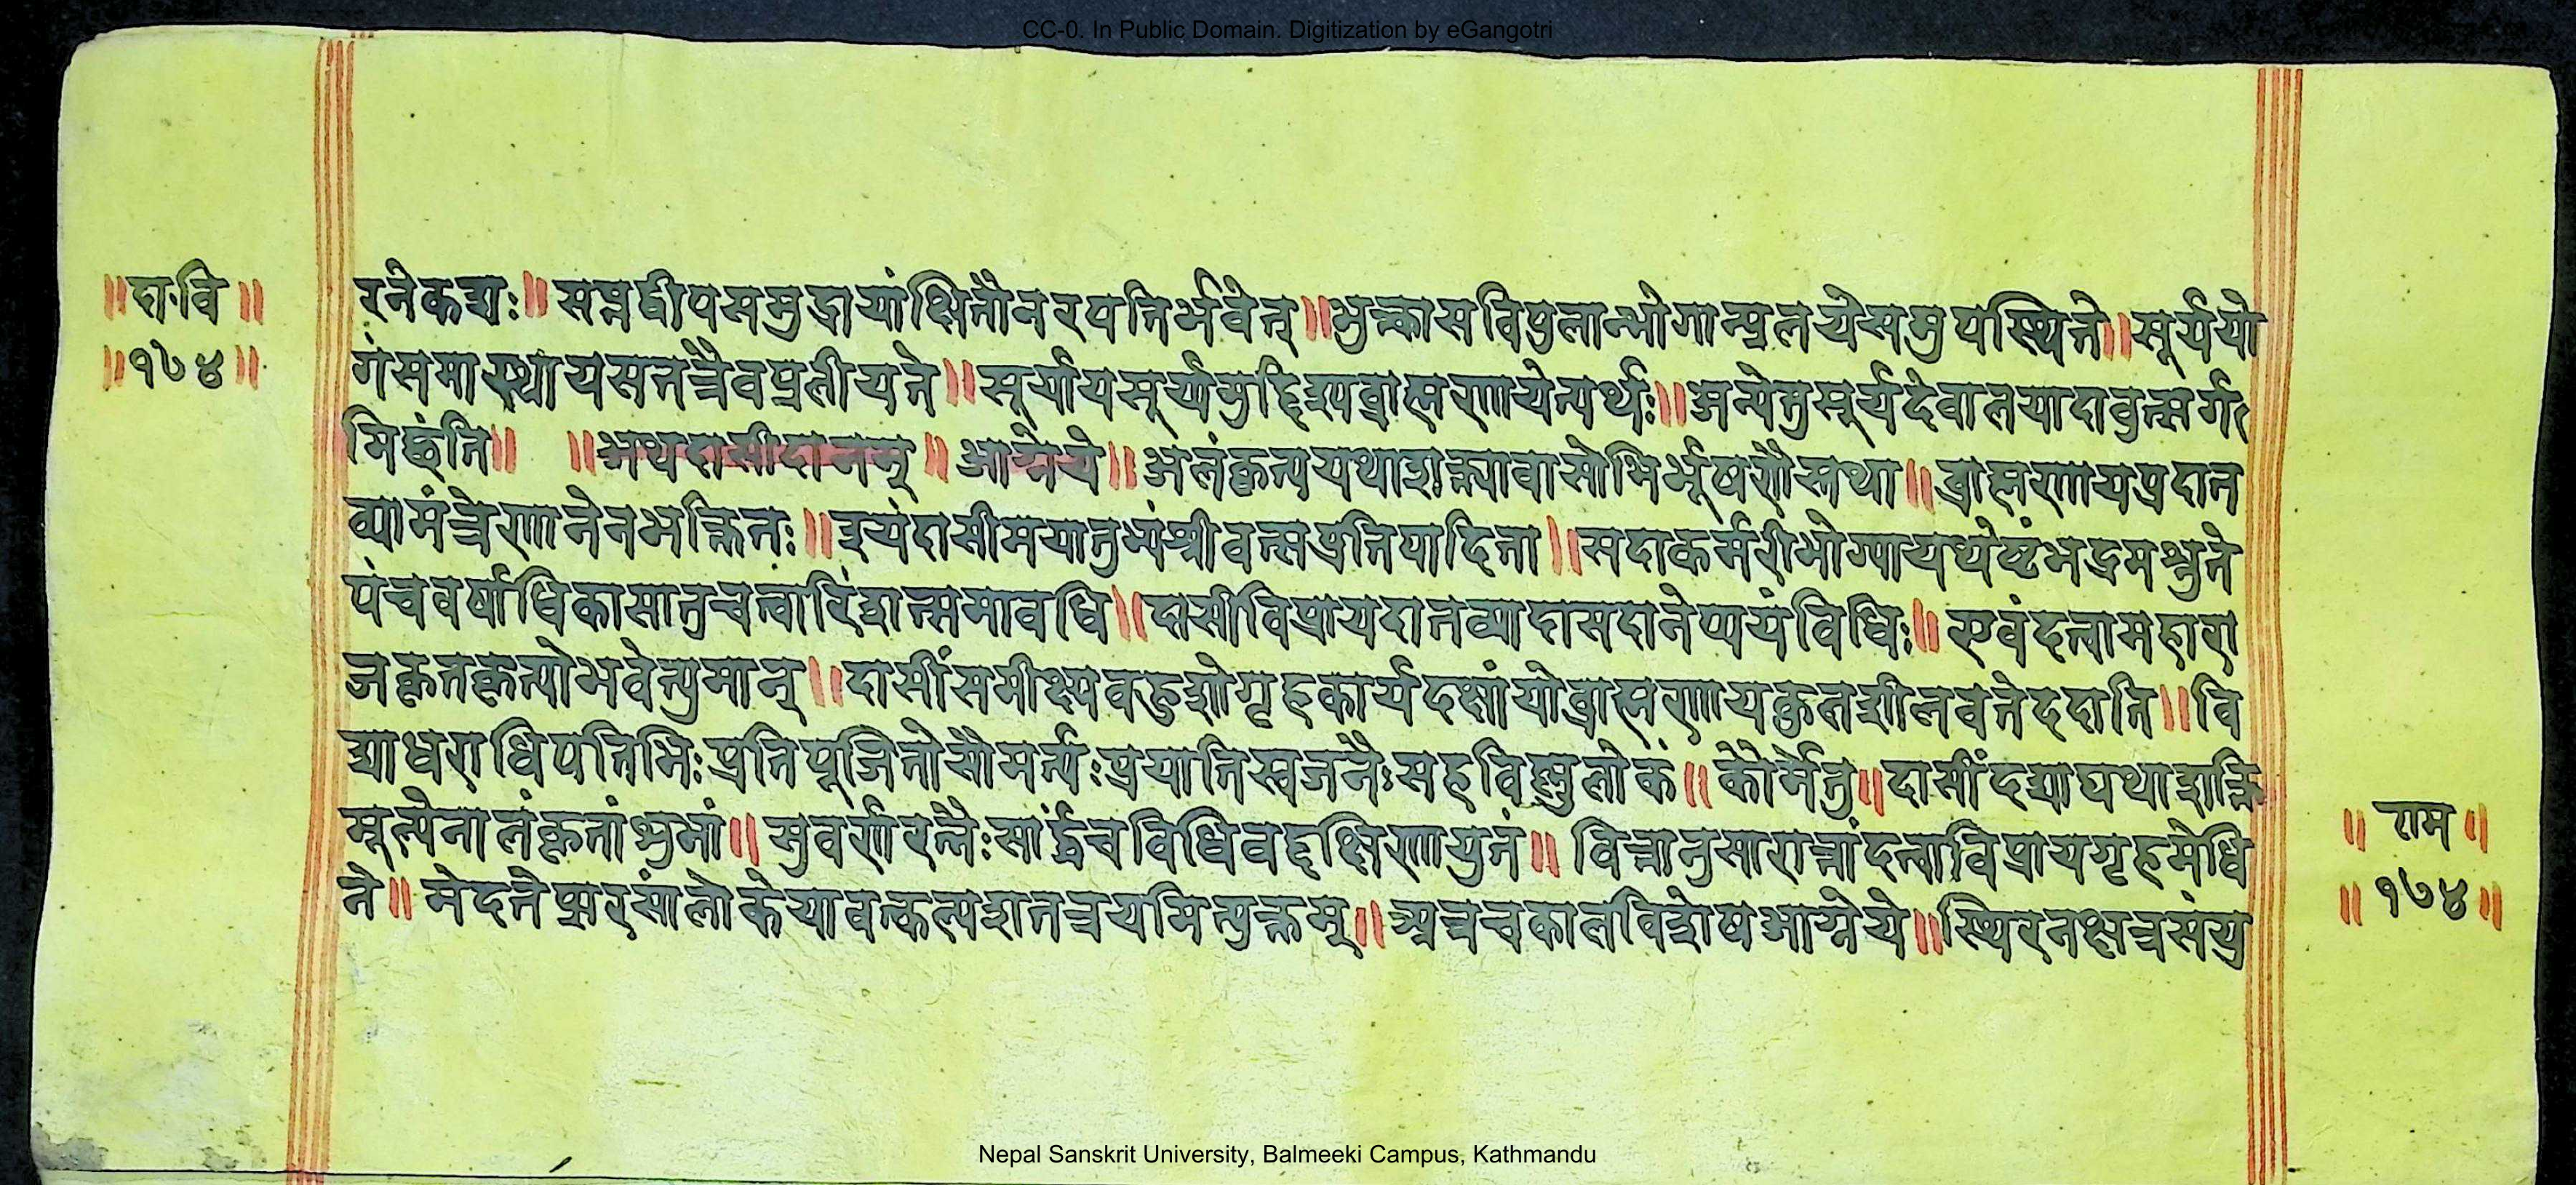 CC-0. In Public Domain. Digitization by eGangotri
॥दा·वि॥
॥१७४॥
रनेकशः॥सप्तद्वीपसमुद्रायांक्षितौनरपतिर्भवेत्॥भुक्त्कासविपुलान्भोगान्प्रलयेसमुपस्थिते॥सूर्ययो
गंसमास्थायसततत्रैवप्रलीयते॥सूर्यायसूर्यामुद्दिश्यब्राह्मणायेत्यर्थः॥अन्येतुसूर्यदेवालयादावुत्सर्ग
मिछंति॥ ॥अथदासीदानम्॥आग्नेये॥अलंकृत्ययथाशक्त्यावासोभिर्भूषणैस्तथा॥ब्राह्मणायप्रदात
व्यामंत्रेणानेनभक्तितः॥इयंदासीमयातुभ्यंश्रीवत्सप्रतिपादिता॥सदाकर्मरीभोग्यायथेष्टंभद्रमश्नुते
पंचवर्षाधिकासातुचत्वारिंशत्समावधि॥दासीविप्रायदातव्यादासदानेप्ययंविधिः॥एवंदत्वामहारा
जकृतकृत्योभवेत्पुमान्॥दासींसमीक्ष्यवहुशोगृहकार्यदक्षांयोब्राह्मणायकुलशीलवतेददाति॥वि
द्याधराधिपतिभिःप्रतिपूजितोसौमर्त्यःप्रयातिस्वजनैःसहविष्णुलोकं॥कौर्मेतु॥दासींदद्याद्यथाशक्ति
मूल्येनालंकृतांशुभां॥सुवर्णरत्नैःसार्द्धंचविधिवद्दक्षिणायुतं॥वित्तानुसारात्तांदत्वाविप्रायगृहमेधि
ने॥मेदतेप्सरसांलोकेयावत्कल्पशतत्रयमित्युक्तम्॥अत्रचकालविशेषआग्नेये॥स्थिरनक्षत्रसंयु
॥राम॥
॥१७४॥
Nepal Sanskrit University, Balmeeki Campus, Kathmandu